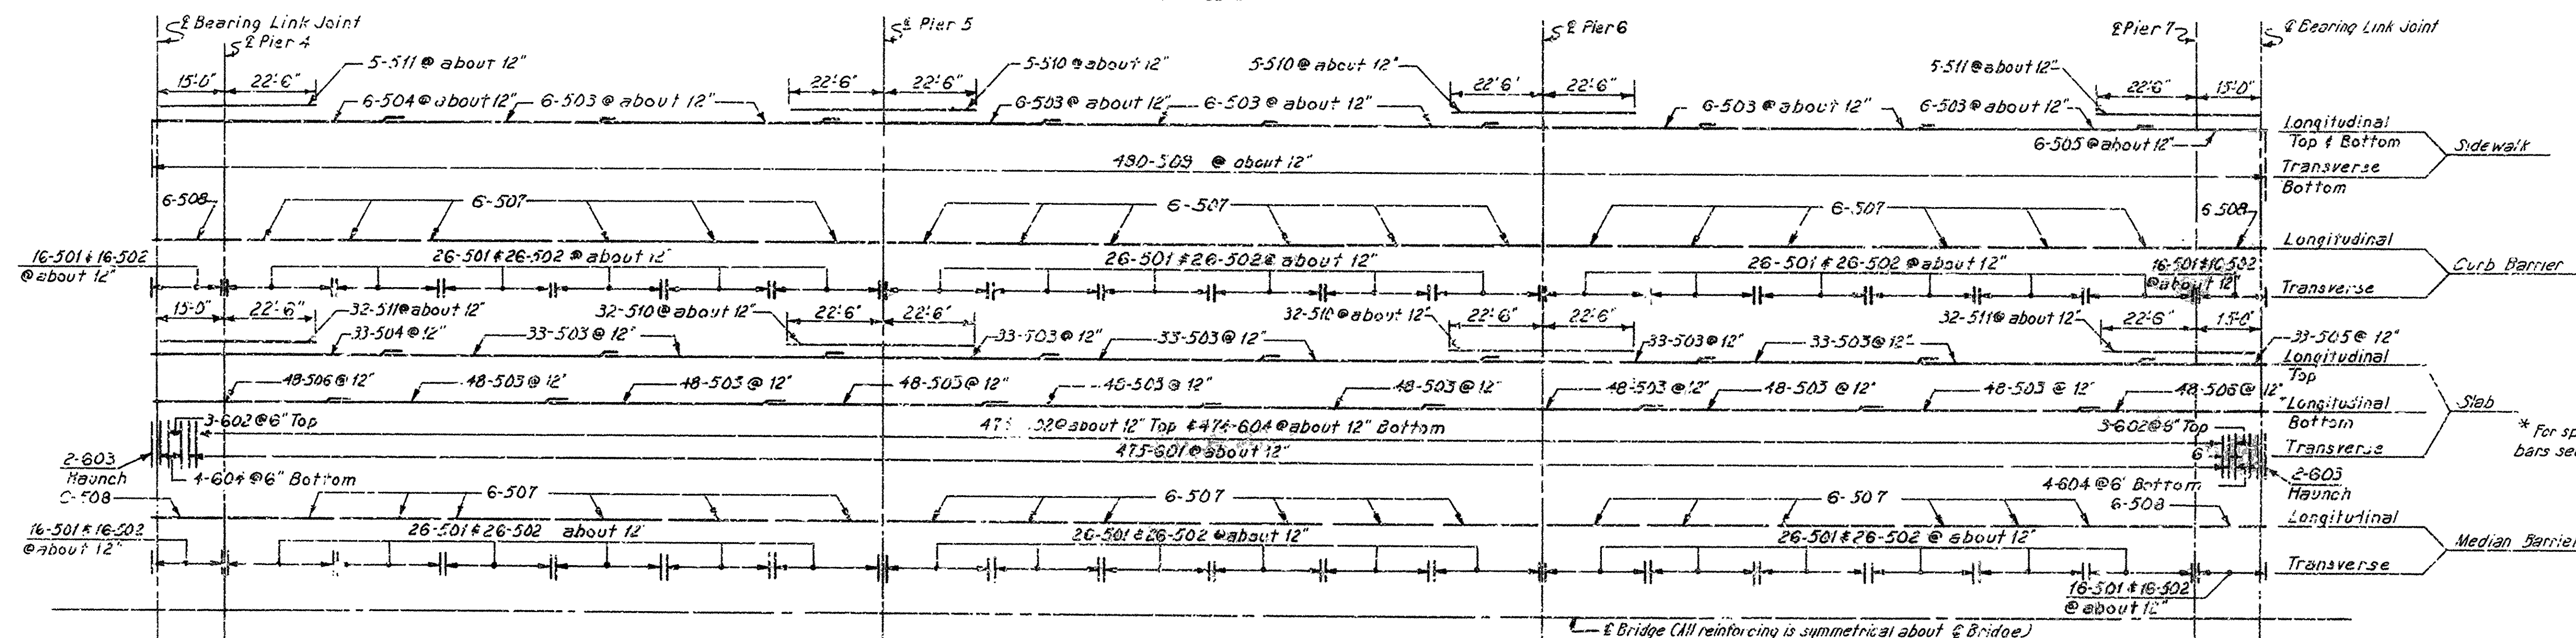 ℄ Bearing Link Joint
℄ Pier 4
℄ Pier 5
℄ Pier 6
℄ Pier 7
℄ Bearing Link Joint
5-511 @ about 12"
5-510 @ about 12"
5-510 @ about 12"
5-511 @ about 12"
15'-0" 22'-6" 22'-6" 22'-6" 22'-6" 22'-6" 22'-6" 15'-0"
6-504 @ about 12" 6-503 @ about 12" 6-503 @ about 12" 6-503 @ about 12" 6-503 @ about 12" 6-503 @ about 12"
6-505 @ about 12"
Longitudinal
Top & Bottom
Sidewalk
480-509 @ about 12"
Transverse
Bottom
6-508 6-507 6-507 6-507 6-508
Longitudinal
16-501 & 16-502
@ about 12"
26-501 & 26-502 @ about 12" 26-501 & 26-502 @ about 12" 26-501 & 26-502 @ about 12"
16-501 & 16-502
@ about 12"
Curb Barrier
Transverse
15'-0" 22'-6" 32-511 @ about 12" 32-510 @ about 12" 22'-6" 22'-6" 32-510 @ about 12" 22'-6" 22'-6" 32-511 @ about 12" 22'-6" 15'-0"
33-504 @ 12" 33-503 @ 12" 33-503 @ 12" 33-503 @ 12" 33-503 @ 12" 33-503 @ 12" 33-505 @ 12"
Longitudinal
Top
48-506 @ 12" 48-503 @ 12" 48-503 @ 12" 48-503 @ 12" 48-503 @ 12" 48-503 @ 12" 48-503 @ 12" 48-503 @ 12" 48-503 @ 12" 48-506 @ 12"
Longitudinal
Bottom
Slab
3-602 @ 6" Top
@ about 12" Top & 474-604 @ about 12" Bottom
3-602 @ 6" Top
475-601 @ about 12"
6"
Transverse
* For
bars
2-603
Haunch
4-604 @ 6" Bottom
4-604 @ 6" Bottom
2-603
Haunch
6-507 6-507 6-507 6-508
Longitudinal
16-501 & 16-502
@ about 12"
26-501 & 26-502 about 12" 26-501 & 26-502 @ about 12" 26-501 & 26-502 @ about 12"
Median Barrier
Transverse
16-501 & 16-502
@ about 12"
℄ Bridge (All reinforcing is symmetrical about ℄ Bridge)